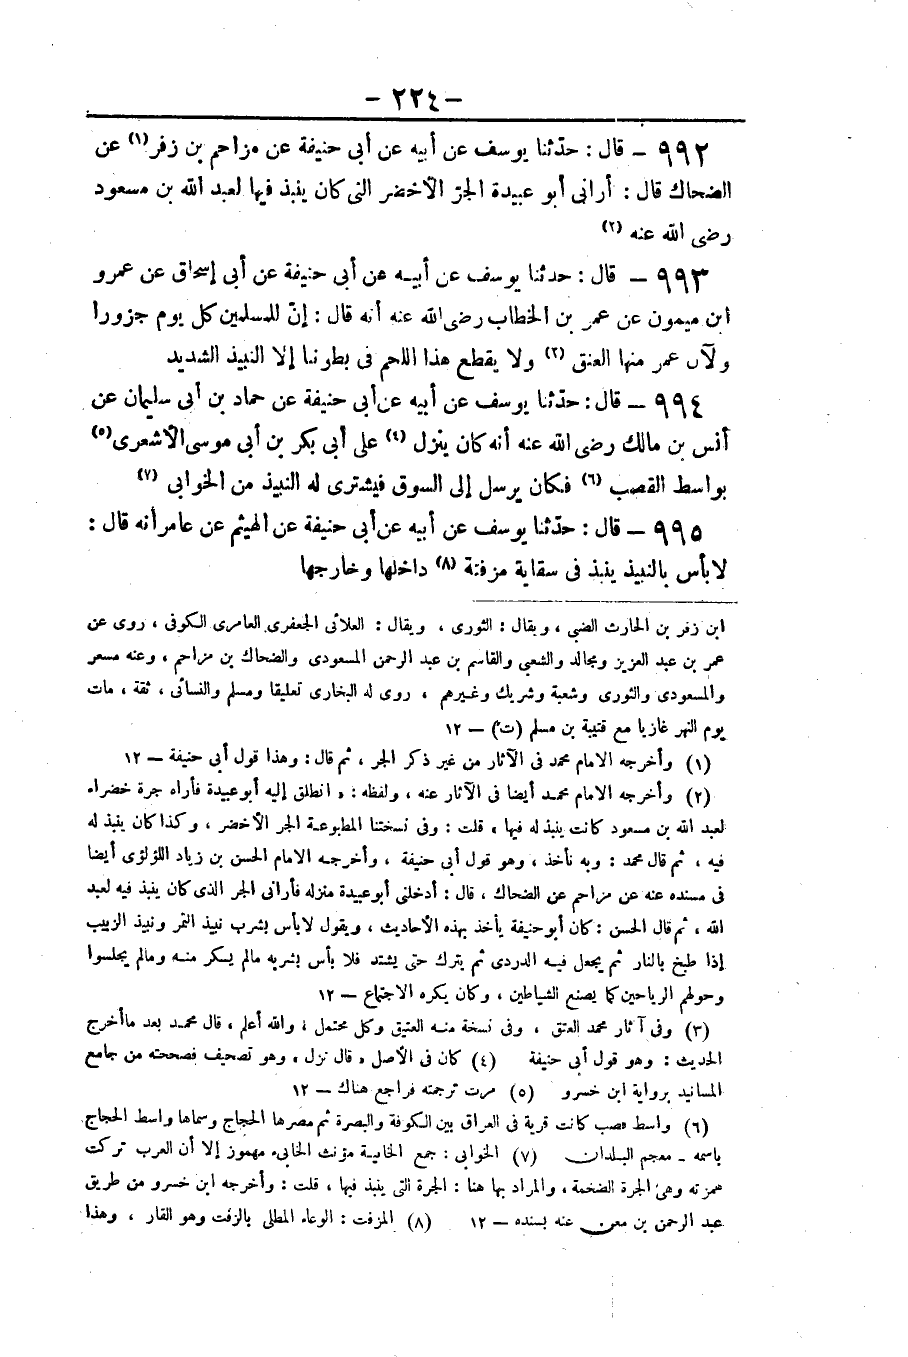 - ٢٢٤ -
٩٩٢ - قال : حدّثنا يوسف عن أبيه عن أبى حنيفة عن مزاحم بن زفر (١) عن
الضحاك قال : أرانى أبو عبيدة الجرّ الأخضر التى كان ينبذ فيها لعبد الله بن مسعود
رضى الله عنه (٢)
٩٩٣ - قال : حدثنا يوسف عن أبيه عن أبى حنيفة عن أبى إسحاق عن عمرو
ابن ميمون عن عمر بن الخطاب رضى الله عنه أنه قال : إنّ للمسلمين كل يوم جزورا
ولآل عمر منها العنق (٣) ولا يقطع هذا اللحم فى بطوننا إلا النبيذ الشديد
٩٩٤ - قال : حدّثنا يوسف عن أبيه عن أبى حنيفة عن حماد بن أبى سليمان عن
أنس بن مالك رضى الله عنه أنه كان ينزل (٤) على أبى بكر بن أبى موسى الأشعرى (٥)
بواسط القصب (٦) فكان يرسل إلى السوق فيشترى له النبيذ من الخوابى (٧)
٩٩٥ - قال : حدّثنا يوسف عن أبيه عن أبى حنيفة عن الهيثم عن عامر أنه قال :
لا بأس بالنبيذ ينبذ فى سقاية مزفتة (٨) داخلها وخارجها
ابن زفر بن الحارث الضبى ، ويقال : الثورى ، ويقال : العلائى الجعفرى العامرى الكوفى ، روى عن
عمر بن عبد العزيز ومجالد والشعبى والقاسم بن عبد الرحمن المسعودى والضحاك بن مزاحم ، وعنه مسعر
والمسعودى والثورى وشعبة وشريك وغيرهم ، روى له البخارى تعليقا ومسلم والنسائى ، ثقة ، مات
يوم النهر غازيا مع قتيبة بن مسلم (ت) - ١٢
(١) وأخرجه الامام محمد فى الآثار من غير ذكر الجر ، ثم قال : وهذا قول أبى حنيفة - ١٢
(٢) وأخرجه الامام محمد أيضا فى الآثار عنه ، ولفظه : « انطلق إليه أبو عبيدة فأراه جرة خضراء
لعبد الله بن مسعود كانت ينبذ له فيها » قلت : وفى نسختنا المطبوعة الجر الأخضر ، وكذا كان ينبذ له
فيه ، ثم قال محمد : وبه نأخذ ، وهو قول أبى حنيفة ، وأخرجه الامام الحسن بن زياد اللؤلؤى أيضا
فى مسنده عنه عن مزاحم عن الضحاك ، قال : أدخلنى أبو عبيدة منزله فأرانى الجر الذى كان ينبذ فيه لعبد
الله ، ثم قال الحسن : كان أبو حنيفة يأخذ بهذه الأحاديث ، ويقول لا بأس بشرب نبيذ التمر ونبيذ الزبيب
إذا طبخ بالنار ثم يجعل فيه الدردى ثم يترك حتى يشتد فلا بأس بشربه مالم يسكر منه ومالم يجلسوا
وحولهم الرياحين كما يصنع الشياطين ، وكان يكره الاجتماع - ١٢
(٣) وفى آثار محمد العتق ، وفى نسخة منه العتيق وكل محتمل ، والله أعلم ، قال محمد بعد ما أخرج
الحديث : وهو قول أبى حنيفة (٤) كان فى الأصل « قال نزل » وهو تصحيف فصححته من جامع
المسانيد برواية ابن خسرو (٥) مرت ترجمته فراجع هناك - ١٢
(٦) واسط قصب كانت قرية فى العراق بين الكوفة والبصرة ثم مصرها الحجاج وسماها واسط الحجاج
باسمه - معجم البلدان (٧) الخوابى : جمع الخابية مؤنث الخابىء مهموز إلا أن العرب تركت
همزته وهى الجرة الضخمة ، والمراد بها هنا : الجرة التى ينبذ فيها ، قلت : وأخرجه ابن خسرو من طريق
عبد الرحمن بن معن عنه بسنده - ١٢ (٨) المزفت : الوعاء المطلى بالزفت وهو القار ، وهذا